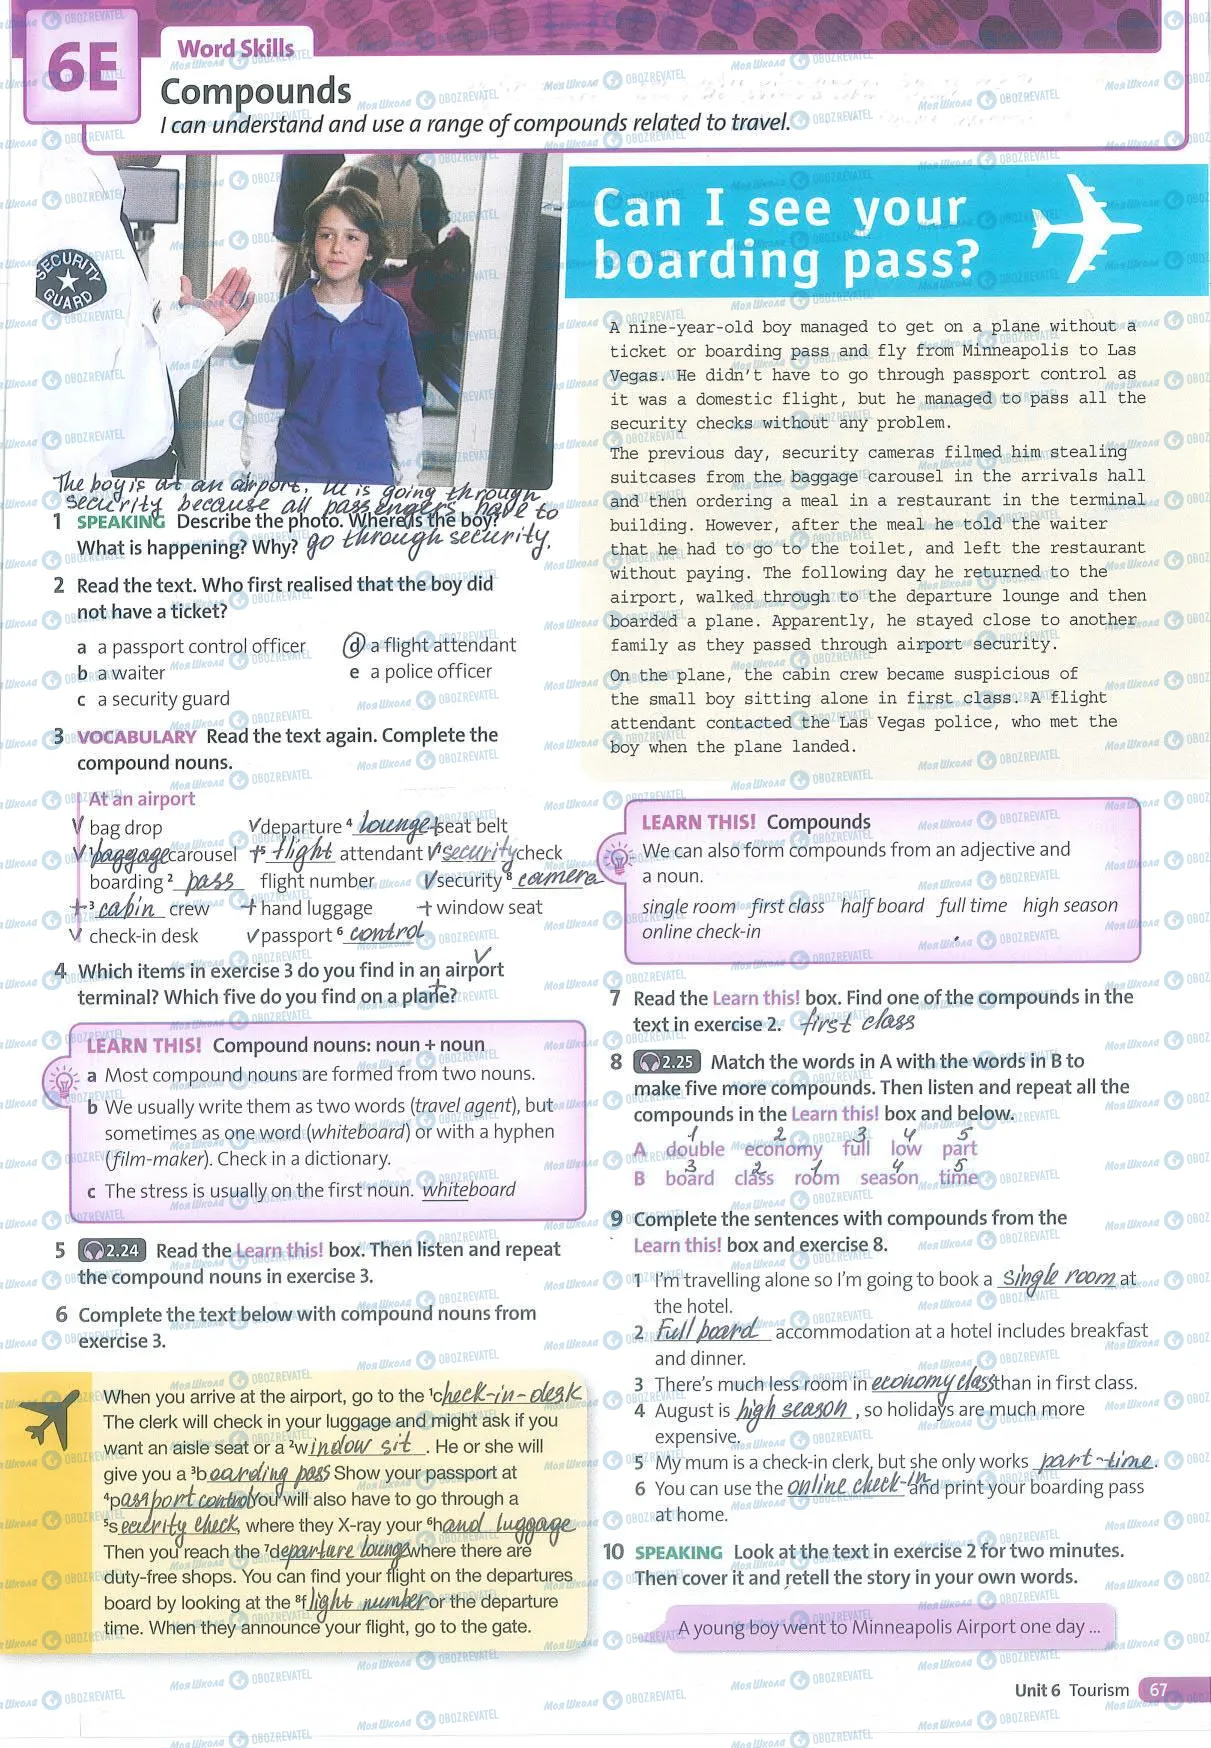 6E
Word Skills
Compounds
I can understand and use a range of compounds related to travel.
SECURITY
GUARD
Can I see your
boarding pass?
The boy is at an airport. He is going through
security because all passengers have to
1 SPEAKING Describe the photo. Where is the boy?
What is happening? Why? go through security.
2 Read the text. Who first realised that the boy did
not have a ticket?
a a passport control officer
b a waiter
c a security guard
d a flight attendant
e a police officer
3 VOCABULARY Read the text again. Complete the
compound nouns.
At an airport
V bag drop V departure 4 lounge + seat belt
V 1 baggage carousel + 5 flight attendant V 7 security check
boarding 2 pass flight number V security 8 camera
+ 3 cabin crew + hand luggage + window seat
V check-in desk V passport 6 control
4 Which items in exercise 3 do you find in an airport V
terminal? Which five do you find on a plane? +
LEARN THIS! Compound nouns: noun + noun
a Most compound nouns are formed from two nouns.
b We usually write them as two words (travel agent), but
sometimes as one word (whiteboard) or with a hyphen
(film-maker). Check in a dictionary.
c The stress is usually on the first noun. whiteboard
5 2.24 Read the Learn this! box. Then listen and repeat
the compound nouns in exercise 3.
6 Complete the text below with compound nouns from
exercise 3.
When you arrive at the airport, go to the 1check-in-desk
The clerk will check in your luggage and might ask if you
want an aisle seat or a 2window sit. He or she will
give you a 3boarding pass Show your passport at
4passport control You will also have to go through a
5security check, where they X-ray your 6hand luggage
Then you reach the 7departure lounge where there are
duty-free shops. You can find your flight on the departures
board by looking at the 8flight number or the departure
time. When they announce your flight, go to the gate.
A nine-year-old boy managed to get on a plane without a
ticket or boarding pass and fly from Minneapolis to Las
Vegas. He didn't have to go through passport control as
it was a domestic flight, but he managed to pass all the
security checks without any problem.
The previous day, security cameras filmed him stealing
suitcases from the baggage carousel in the arrivals hall
and then ordering a meal in a restaurant in the terminal
building. However, after the meal he told the waiter
that he had to go to the toilet, and left the restaurant
without paying. The following day he returned to the
airport, walked through to the departure lounge and then
boarded a plane. Apparently, he stayed close to another
family as they passed through airport security.
On the plane, the cabin crew became suspicious of
the small boy sitting alone in first class. A flight
attendant contacted the Las Vegas police, who met the
boy when the plane landed.
LEARN THIS! Compounds
We can also form compounds from an adjective and
a noun.
single room first class half board full time high season
online check-in
7 Read the Learn this! box. Find one of the compounds in the
text in exercise 2. first class
8 2.25 Match the words in A with the words in B to
make five more compounds. Then listen and repeat all the
compounds in the Learn this! box and below.
1 2 3 4 5
A double economy full low part
3 2 1 4 5
B board class room season time
9 Complete the sentences with compounds from the
Learn this! box and exercise 8.
1 I'm travelling alone so I'm going to book a single room at
the hotel.
2 Full board accommodation at a hotel includes breakfast
and dinner.
3 There's much less room in economy class than in first class.
4 August is high season, so holidays are much more
expensive.
5 My mum is a check-in clerk, but she only works part-time.
6 You can use the online check-in and print your boarding pass
at home.
10 SPEAKING Look at the text in exercise 2 for two minutes.
Then cover it and retell the story in your own words.
A young boy went to Minneapolis Airport one day ...
Unit 6 Tourism 67
МояШкола OBOZREVATEL